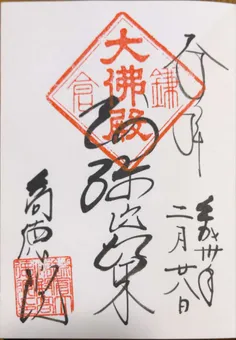 奉拝
平成卅年
二月廿八日
大佛殿
鎌倉
阿弥陀如来
高徳院